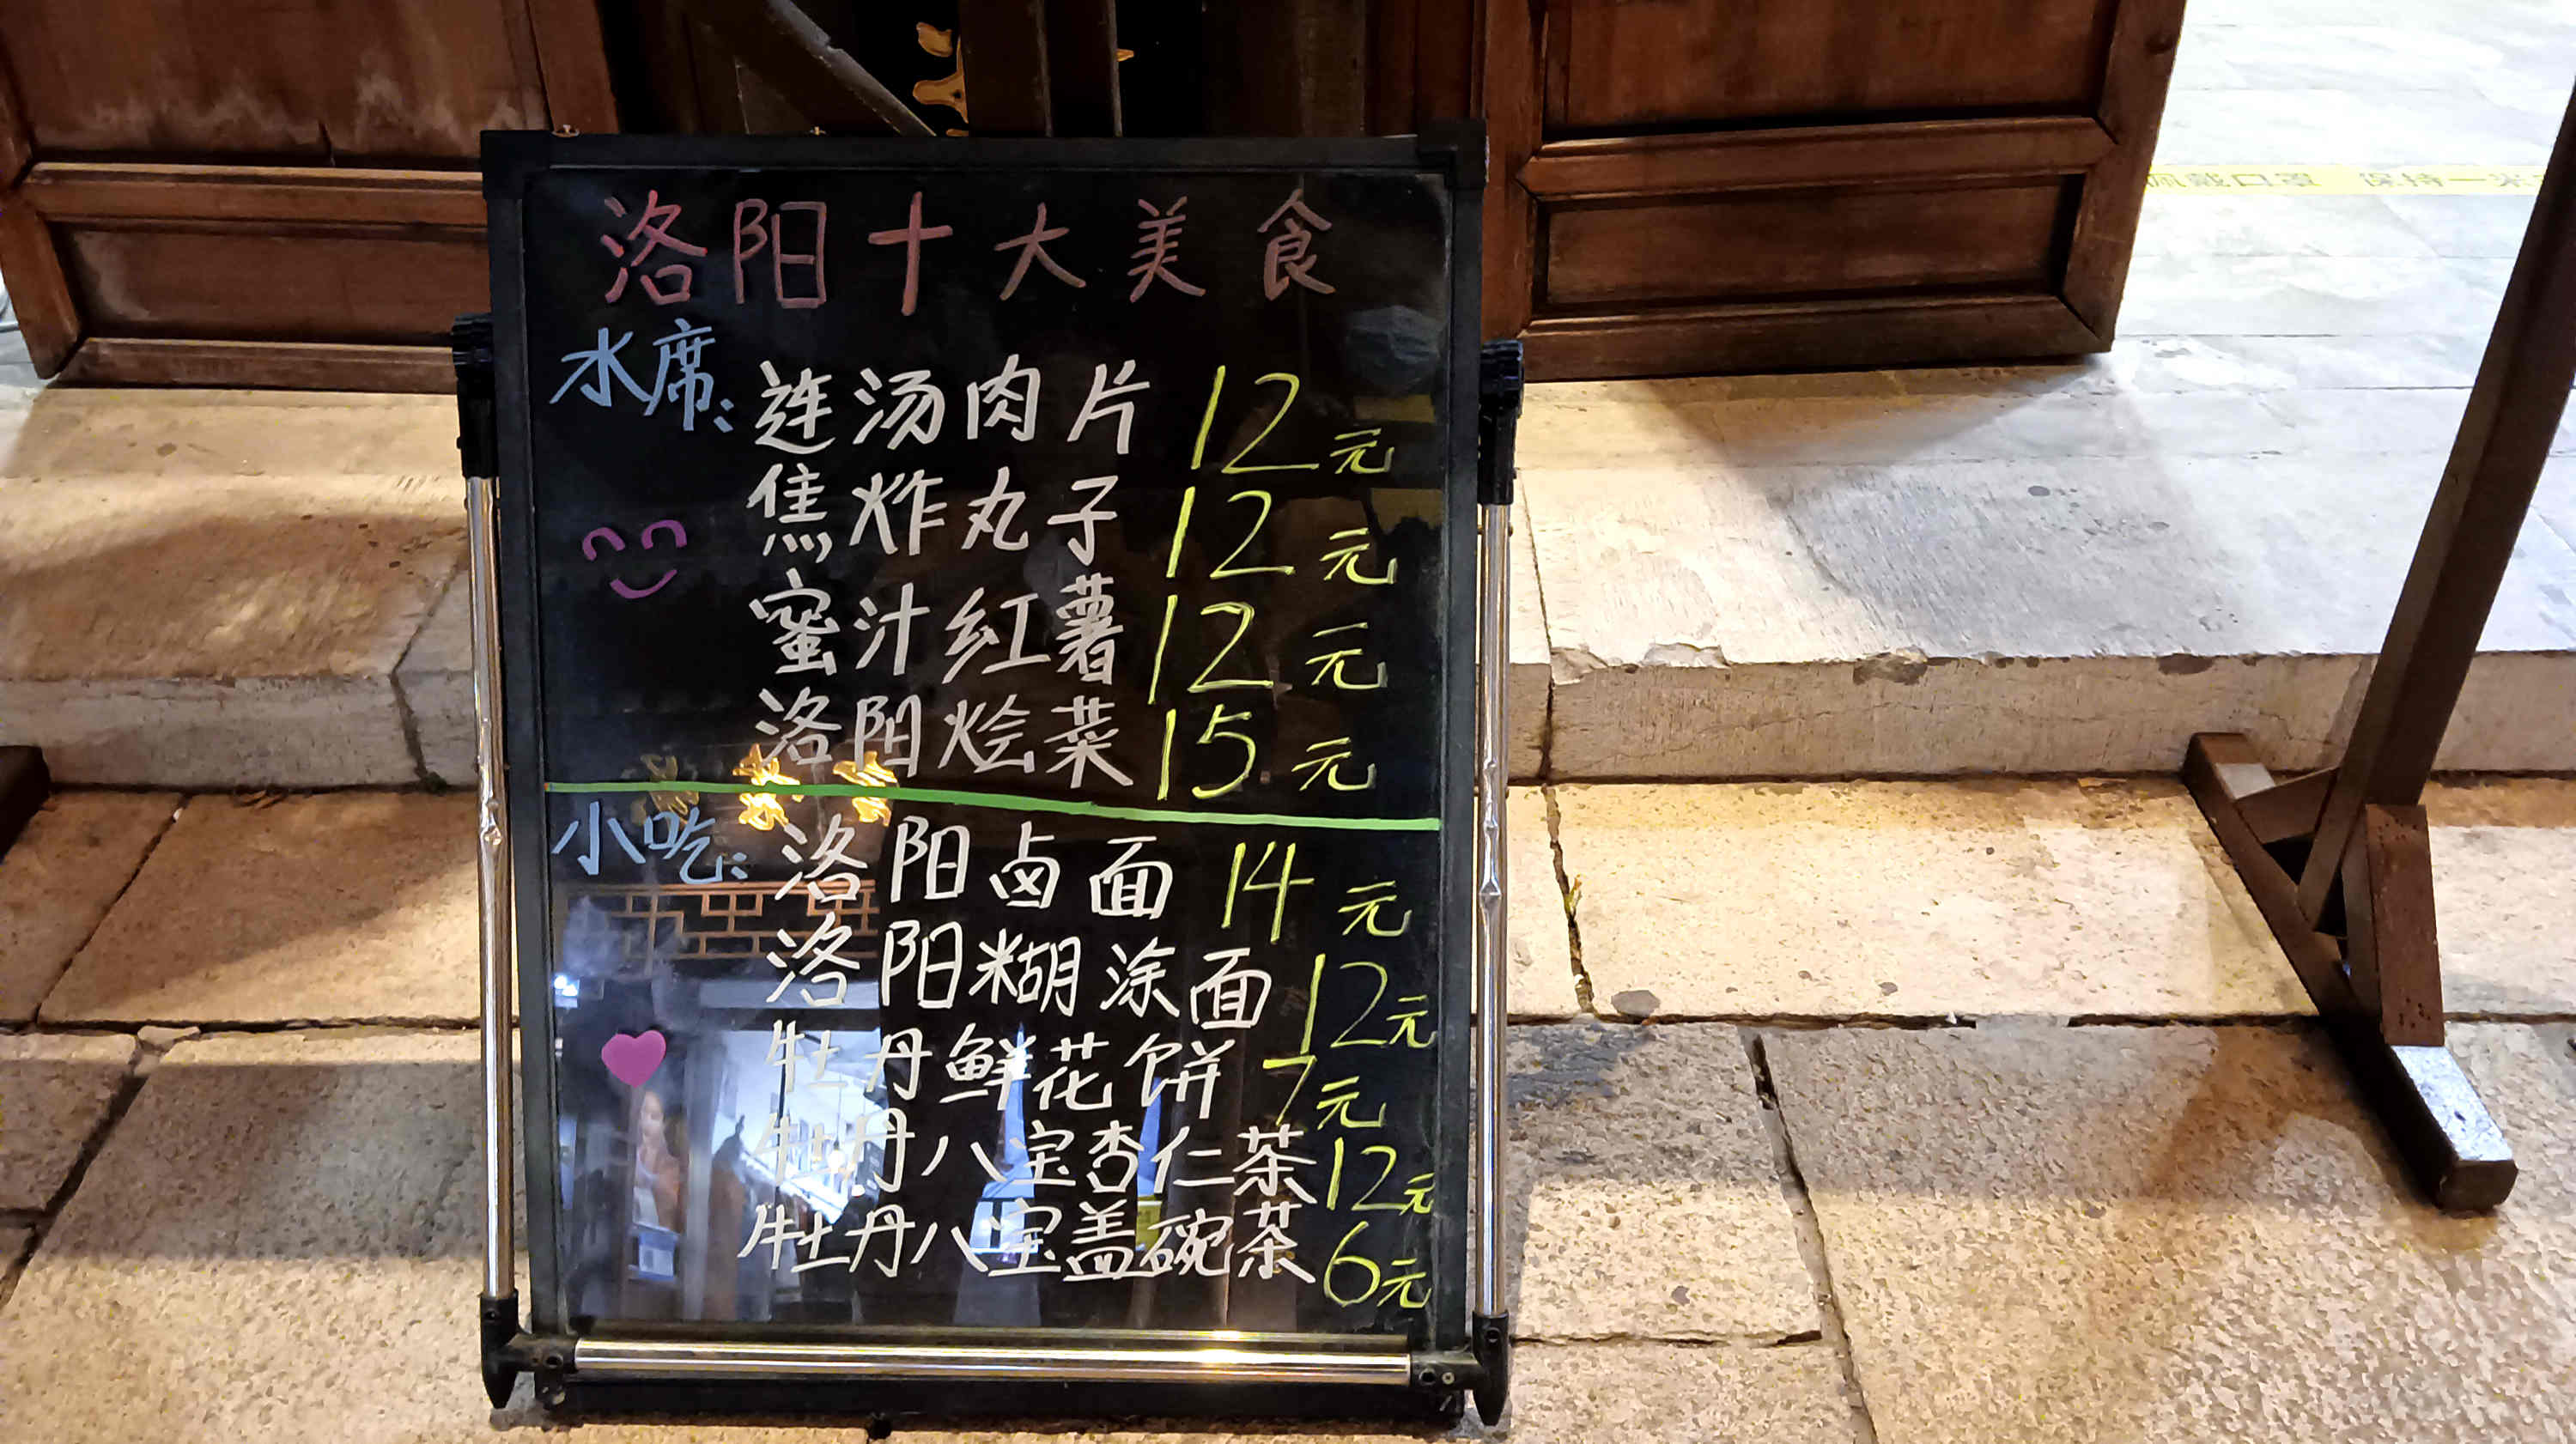 洛阳十大美食
水席:
连汤肉片 12元
焦炸丸子 12元
蜜汁红薯 12元
洛阳烩菜 15元
小吃:
洛阳卤面 14元
洛阳糊涂面 12元
牡丹鲜花饼 7元
牡丹八宝杏仁茶 12元
牡丹八宝盖碗茶 6元
佩戴口罩 保持一米